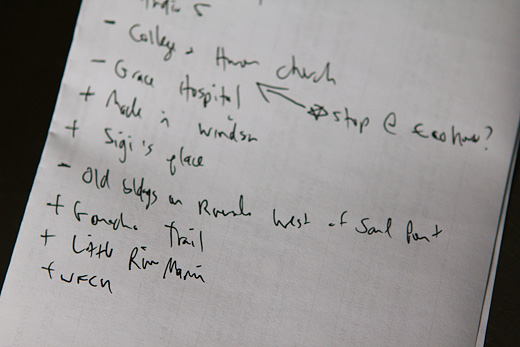 - College & Huron Church
- Grace Hospital
stop @ Ecohouse?
+ Made in Windsor
+ Sigi's place
- Old bldgs on Riverside West of Sand Point
+ Ganatchio Trail
+ Little River Marin
+ WFCU